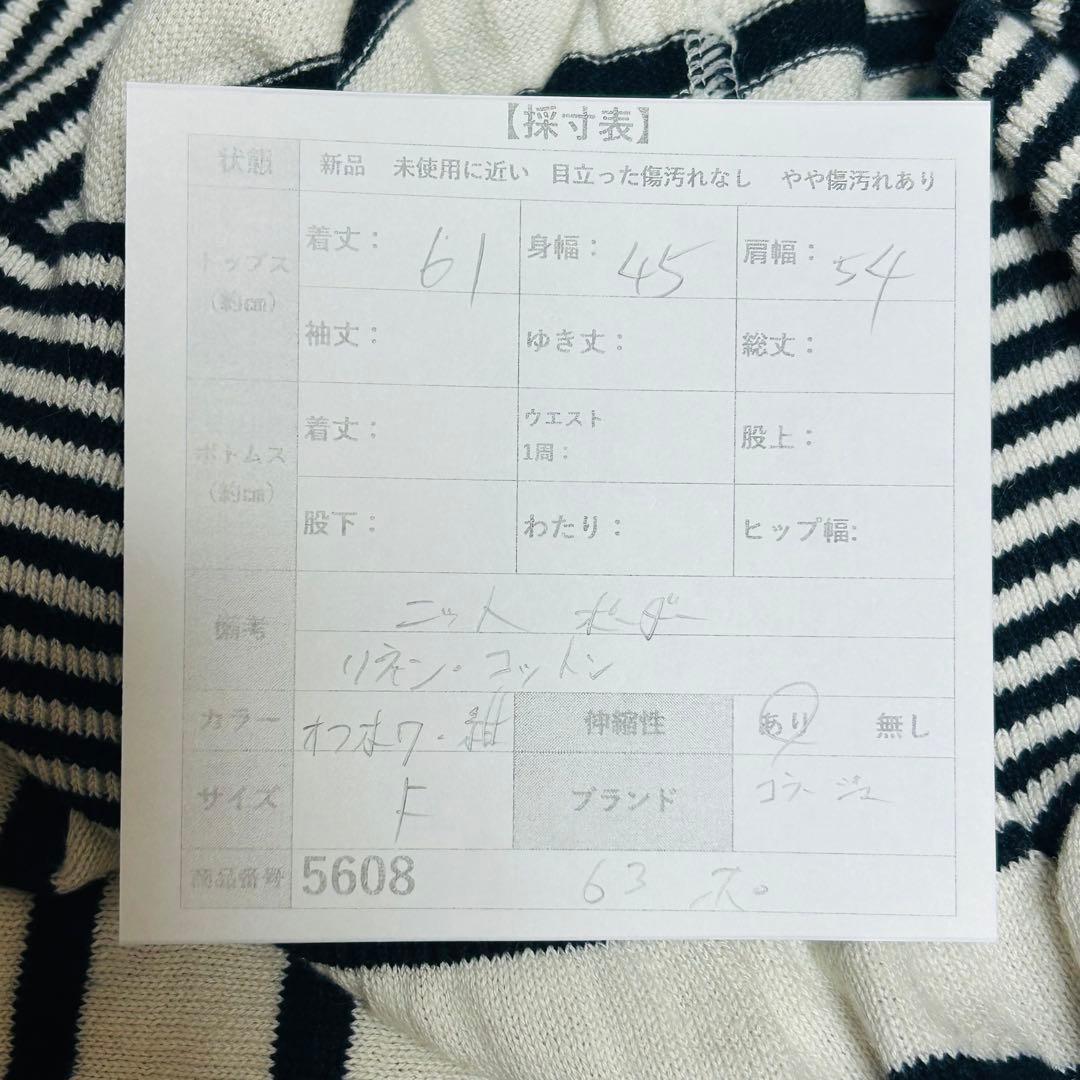 【採寸表】
状態 新品 未使用に近い 目立った傷汚れなし やや傷汚れあり
トップス（約㎝） 着丈： 61 身幅： 45 肩幅： 54
袖丈： ゆき丈： 総丈：
ボトムス（約㎝） 着丈： ウエスト1周： 股上：
股下： わたり： ヒップ幅:
備考 ニット ボーダー
リネン・コットン
カラー オフホワ・紺 伸縮性 あり 無し
サイズ ブランド コラージュ
商品番号 5608 63 ス。